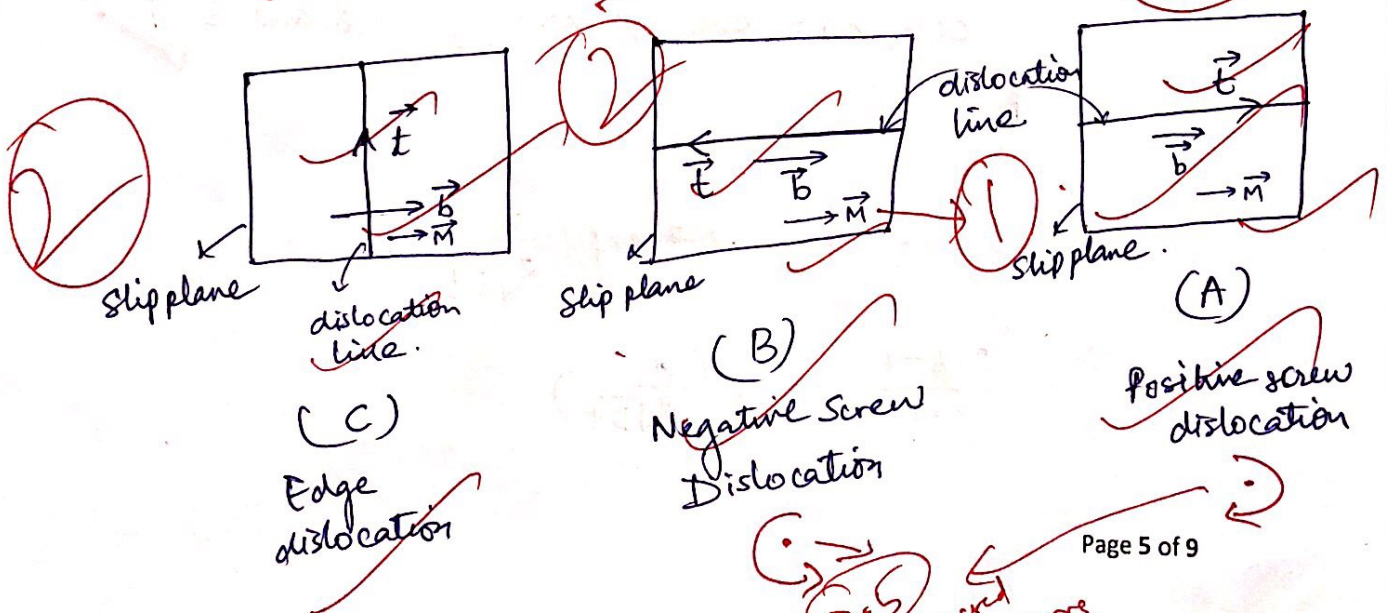 t
b
M
Slip plane
dislocation
line.
(C)
Edge
dislocation
2
2
t
b
M
Slip plane
(B)
Negative Screw
Dislocation
dislocation
line
1
t
b
M
Slip plane.
(A)
Positive screw
dislocation
Page 5 of 9